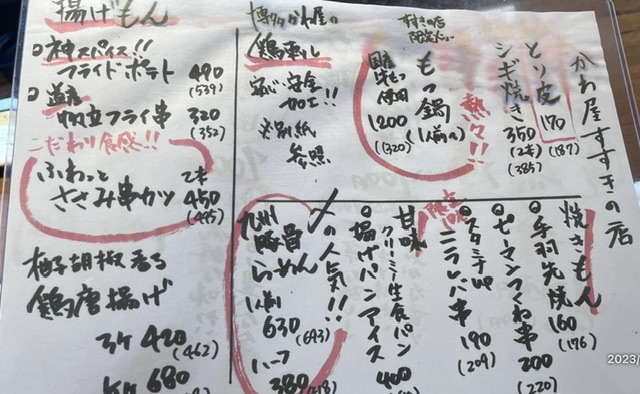 かわ屋すすきの店
とり皮 170
(187)
シギ焼き 350
(2本)
(385)
すすきの店
限定メニュー
熱々!!
もつ鍋(1人前〜)
国産牛もつ使用
1200
(1320)
博多かわ屋の
鶏刺し
安心・安全
加工!!
※別紙
参照
揚げもん
神スパイス!!
フライドポテト 490
(539)
道産
帆立フライ串 320
(352)
こだわり食感!!
ふわっと 2本
ささみ串カツ 450
(495)
柚子胡椒香る
鶏唐揚げ
3ケ 420
(462)
5ケ 680
焼きもん
手羽先焼 160
(176)
ピーマンつくね串 200
(220)
限定10本
スタミナup
ニラレバ串 190
(209)
甘味
クリーミー生食パン
揚げパンアイス 400
〆の人気!!
九州
豚骨
らーめん
1人前
630
(693)
ハーフ
380
(418)
2023/